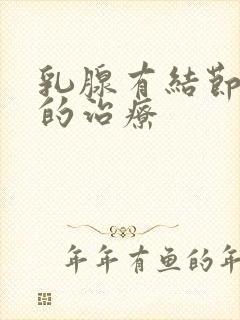 乳腺有結節
的治療
年年有鱼的年